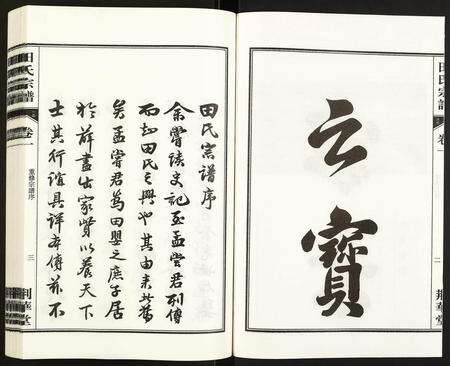 田氏宗譜
卷一
二
荆華堂
云寶
田氏宗譜序
余嘗讀史記至孟嘗君列傳
而知田氏之興也其由来舊
矣孟嘗君為田嬰之庶子居
於薛盡出家以養天下
士其行誼具詳本傳茲不
田氏宗譜
卷一
重修宗譜序
三
荆華堂